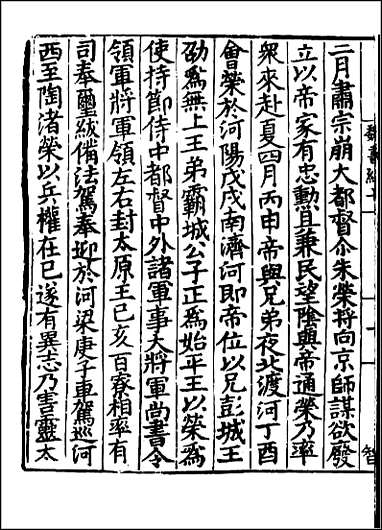 二月肅宗崩大都督尒朱榮将向京師謀欲發
立以帝家有忠勲且兼民望陰與帝通榮乃率
衆來赴夏四月丙申帝與兄弟夜北渡河丁酉
會榮於河陽戊戌南濟河即帝位以兄彭城王
劭為無上王弟霸城公子正為始平王以榮為
使持節侍中都督中外諸軍事大將軍尚書令
領軍將軍領左右封太原王己亥百寮相率有
司奉璽紱備法駕奉迎於河梁庚子車駕巡河
西至陶渚榮以兵權在已遂有異志乃害靈太